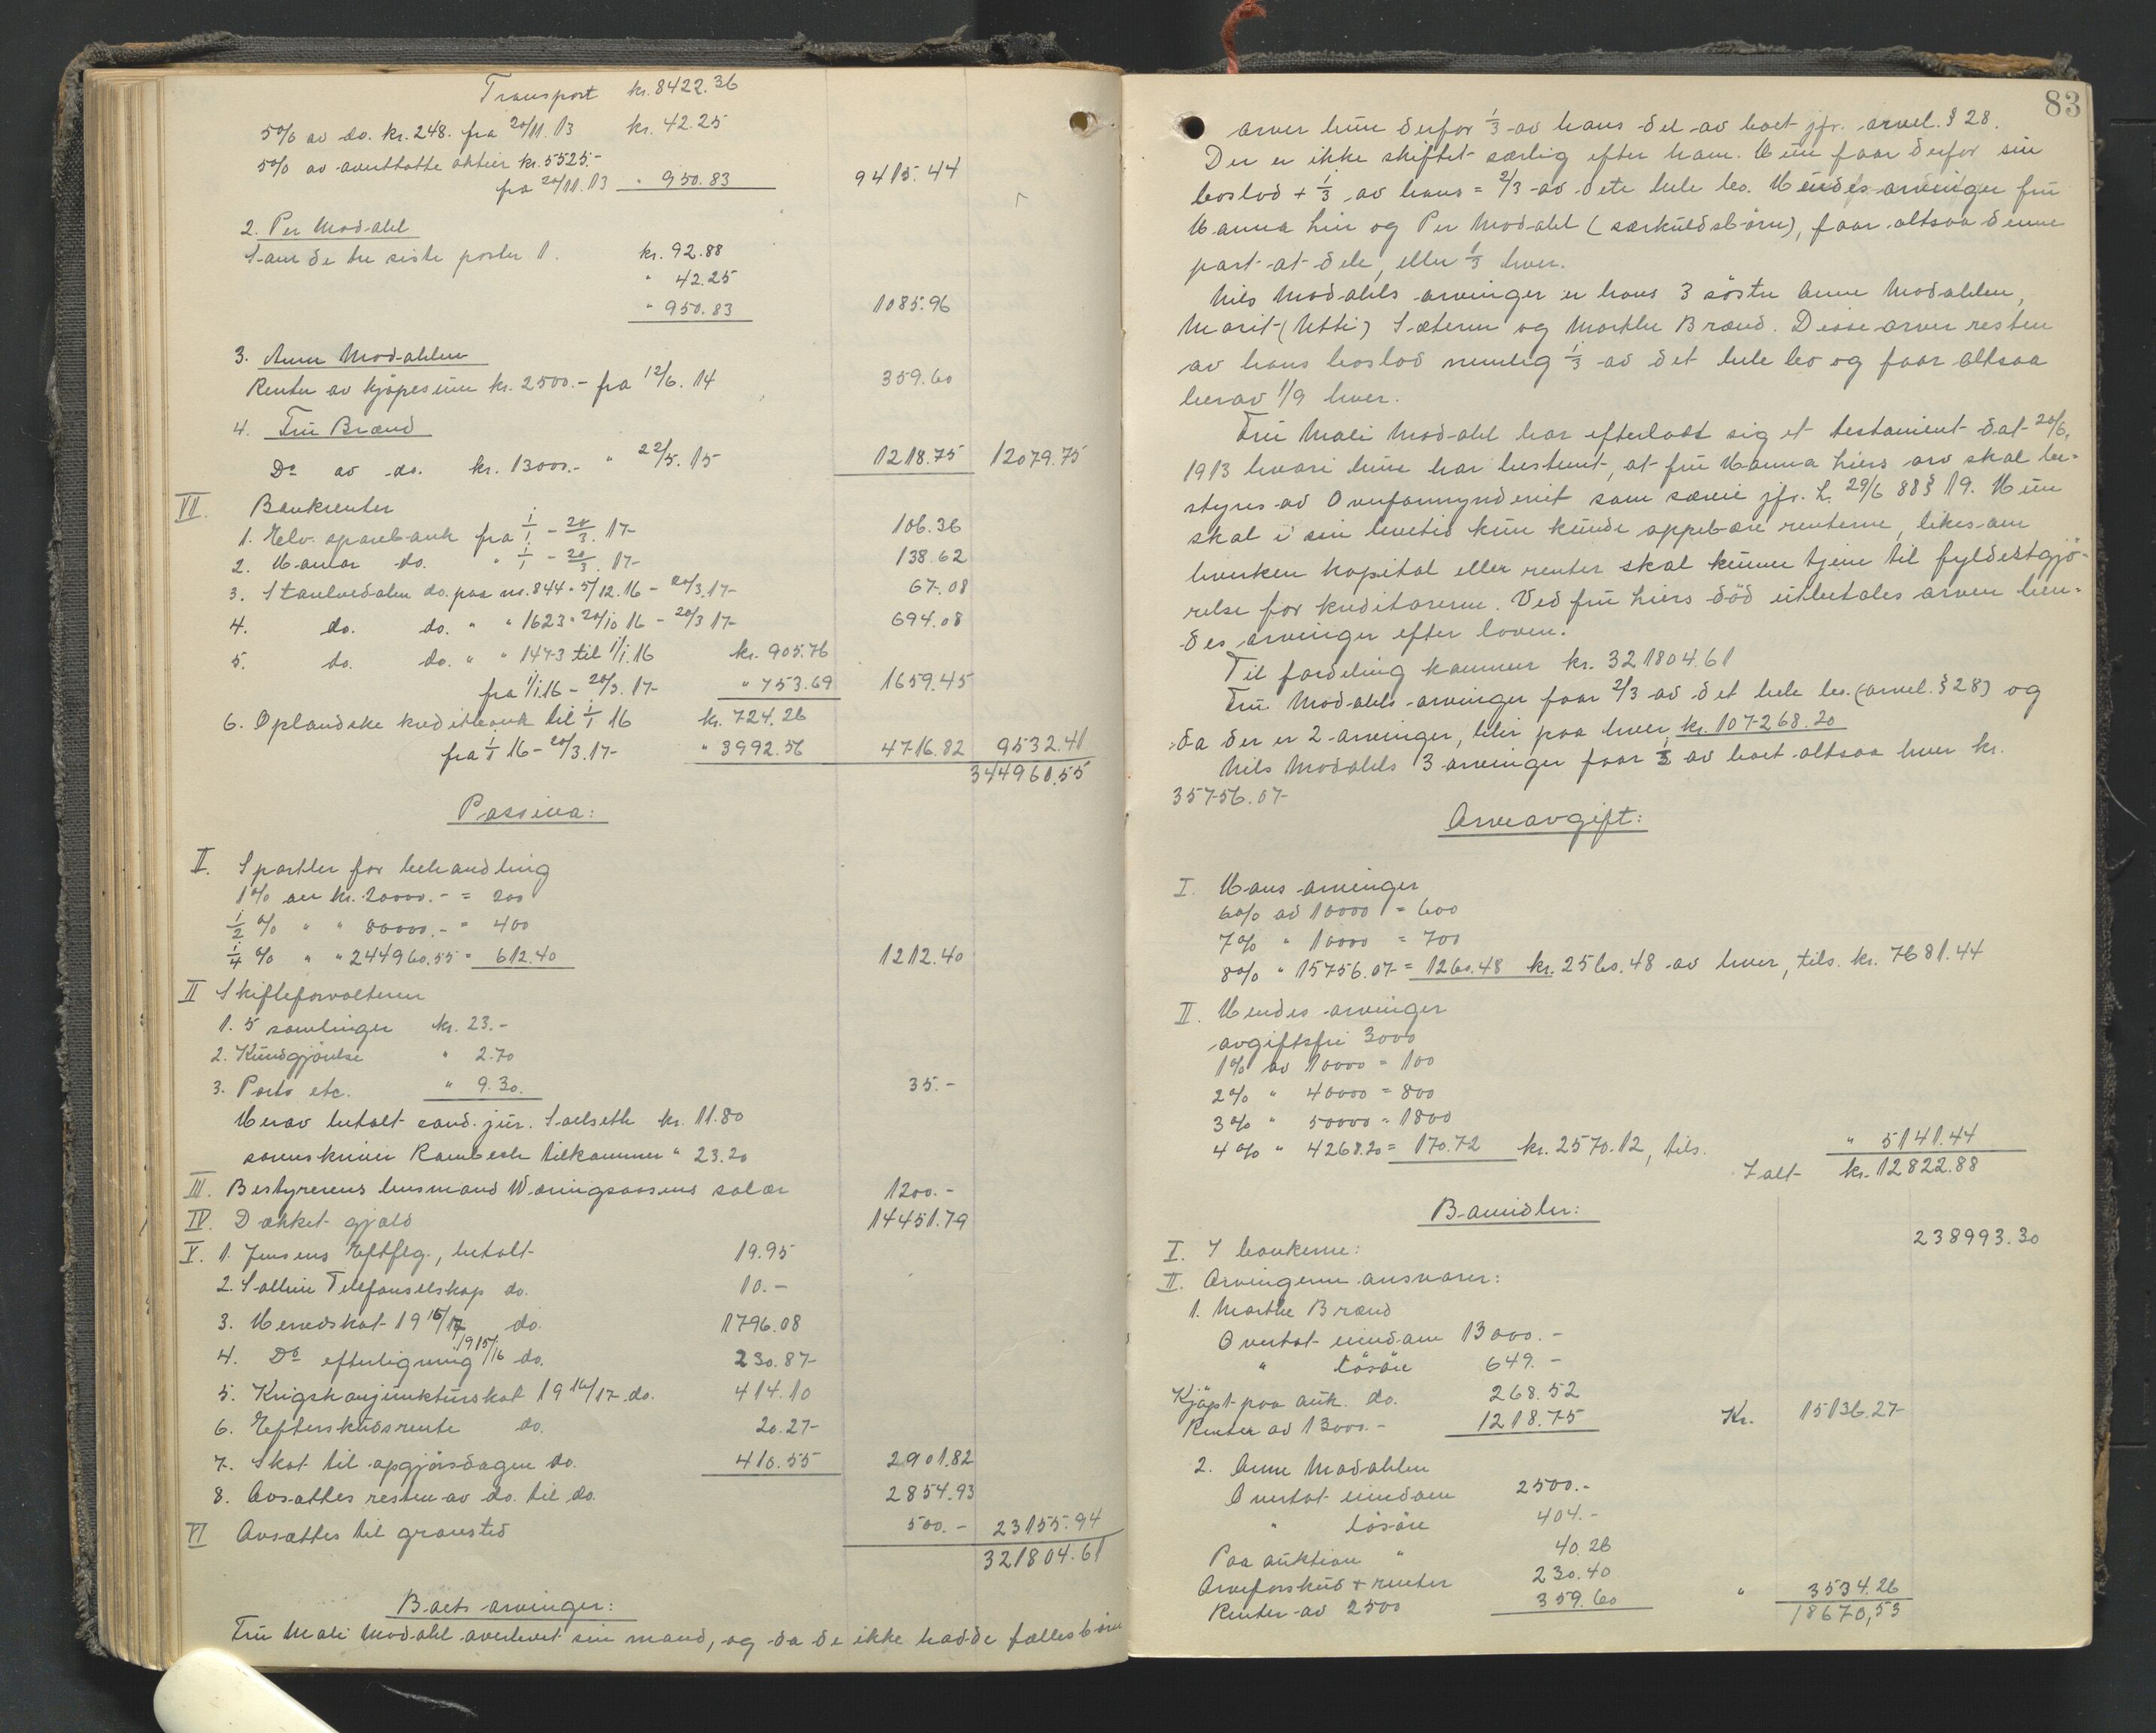 Transport kr. 8422.36
5% av do. kr. 248. fra 20/11.13 kr. 42.25
5% av aventtatte aktier kr. 5525.-
fra 20/11.13 " 950.83 9415.44
2. Per Modahl
Samme de tre siste poster 1. kr. 92.88
" 42.25
" 950.83 1085.96
3. Anne Modahlen
Renter av kjøpesum kr. 2500.- fra 12/6.14 359.60
4. Fru Brænd
Do av do. kr. 13000.- " 22/5.15 1218.75 12079.75
VII. Bankrenter
1. Elv. sparebank fra 1/1 - 20/3.17 106.36
2. Hamar do. " 1/1 - 20/3.17 138.62
3. Stærlvedalen do. paa nr. 844 - 5/12.16 - 20/3.17 67.08
4. do. do. " " 1623 - 20/10 16 - 20/3 17 694.08
5. do. do. " " 1473 til 1/1.16 kr. 905.76
fra 1/1.16 - 20/3.17 " 753.69 1659.45
6. Oplandske kreditbank til 1/1 16 kr. 724.26
fra 1/1 16 - 20/3.17 " 3992.56 4716.82 9532.41
344960.55
Passiva:
II. Sportler for behandling
1% av kr. 20000.- = 200
1/2 % " " 80000.- = 400
1/4 % " " 244960.55 = 612.40 1212.40
II Skifteforvalteren
1. 5 samlinger kr. 23.-
2. Kundgjørelse " 2.70
3. Porto etc. " 9.30. 35.-
Herav betalt cand. jur. Saelseth kr. 11.80
sorenskriver Rambech tilkommer " 23.20
III. Bestyrerens lensmand Wæringsaasens salær 1200.-
IV. Dækket gjæld 14451.79
V. 1. Jensens Eftflg., betalt 19.95
2. Sollien Telefonselskap do. 10.-
3. Herredskat 19 16/17 do. 1796.08
4. Do efterligning 1915/16 do. 230.87
5. Krigskonjunkturskat 19 16/17 do. 414.10
6. Efterskudsrente do. 20.27
7. Skat til opgjørsdagen do. 410.55 2901.82
8. Avsættes resten av do. til do. 2854.93
VI Avsættes til gravsted 500.- 23155.94
321804.61
Boets arvinger:
Fru Mali Modahl overlevet sin mand, og da de ikke hadde fællesbørn
83
arver hun derfor 1/3 av hans del av boet jfr. arvel. § 28.
Der er ikke skiftet særlig efter ham. Hun faar derfor sin
boslod + 1/3 av hans = 2/3 av dete hele bo. Hendes arvinger fru
Hanna Lier og Per Modahl (særkuldsbørn), faar altsaa denne
part at dele, eller 1/3 hver.
Nils Modahls arvinger er hans 3 søstre Anne Modahlen,
Marit (Utti) Sæteren og Marthe Brænd. Disse arver resten
av hans boslod nemlig 1/3 av det hele bo og faar altsaa
herav 1/9 hver.
Fru Mali Modahl har efterladt sig et testament dat. 20/6.
1913 hvori hun har bestemt, at fru Hanna Liers arv skal be-
styres av Overformynderiet som særeie jfr. L. 29/6 88 § 19. Hun
skal i sin levetid kun kunde oppebære renterne, likesom
hverken kapital eller renter skal kunne tjene til fyldestgjø-
relse for kreditorerne. Ved fru Liers død utbetales arven hen-
des arvinger efter loven.
Til fordeling kommer kr. 321804.61
Fru Modahls arvinger faar 2/3 av det hele bo. (arvel. § 28) og
da der er 2 arvinger, blir paa hver kr. 107268.20
Nils Modahls 3 arvinger faar 1/3 av boet altsaa hver kr.
35756.07
Arveavgift:
I. Hans arvinger
6% av 10000 = 600
7% " 10000 = 700
8% " 15756.07 = 1260.48 kr. 2560.48 av hver, tils. kr. 7681.44
II. Hendes arvinger
avgiftsfri 3000
1% av 10000 = 100
2% " 40000 = 800
3% " 50000 = 1800
4% " 4268.20 = 170.72 kr. 2570.12, tils. " 5141.44
Ialt kr. 12822.88
Bomidler:
I. I bankerne: 238993.30
II. Arvingerne ansvarer:
1. Marthe Brænd
Overtat eiendom 13000.-
" løsøre 649.-
Kjøpt paa auk. do. 268.52
Renter av 13000.- 1218.75 Kr. 15136.27
2. Anne Modahlen
Overtat eiendom 2500.-
" løsøre 404.-
Paa auktion " 40.26
Arveforskud + renter 230.40
Renter av 2500 359.60 " 3534.26
18670,53